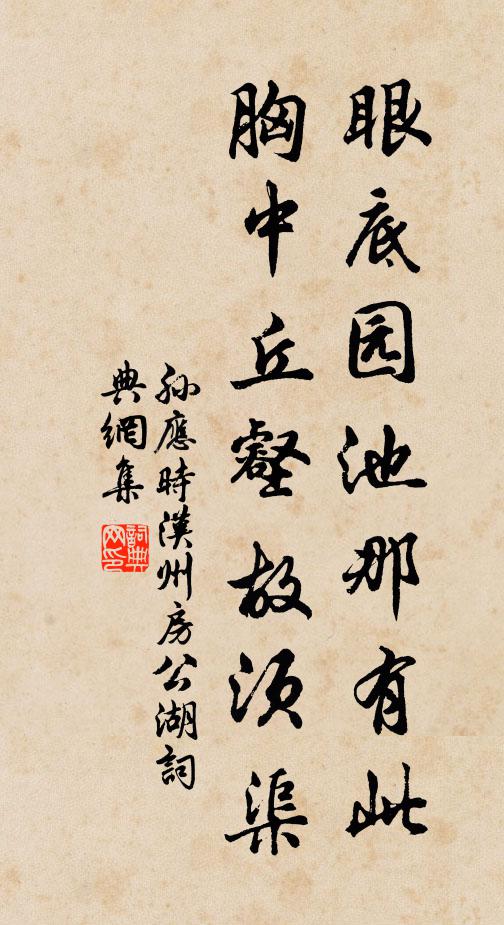 眼底园池那有此
胸中丘壑故须渠
孙應時漢州房公湖詞
典網集
詞典網印